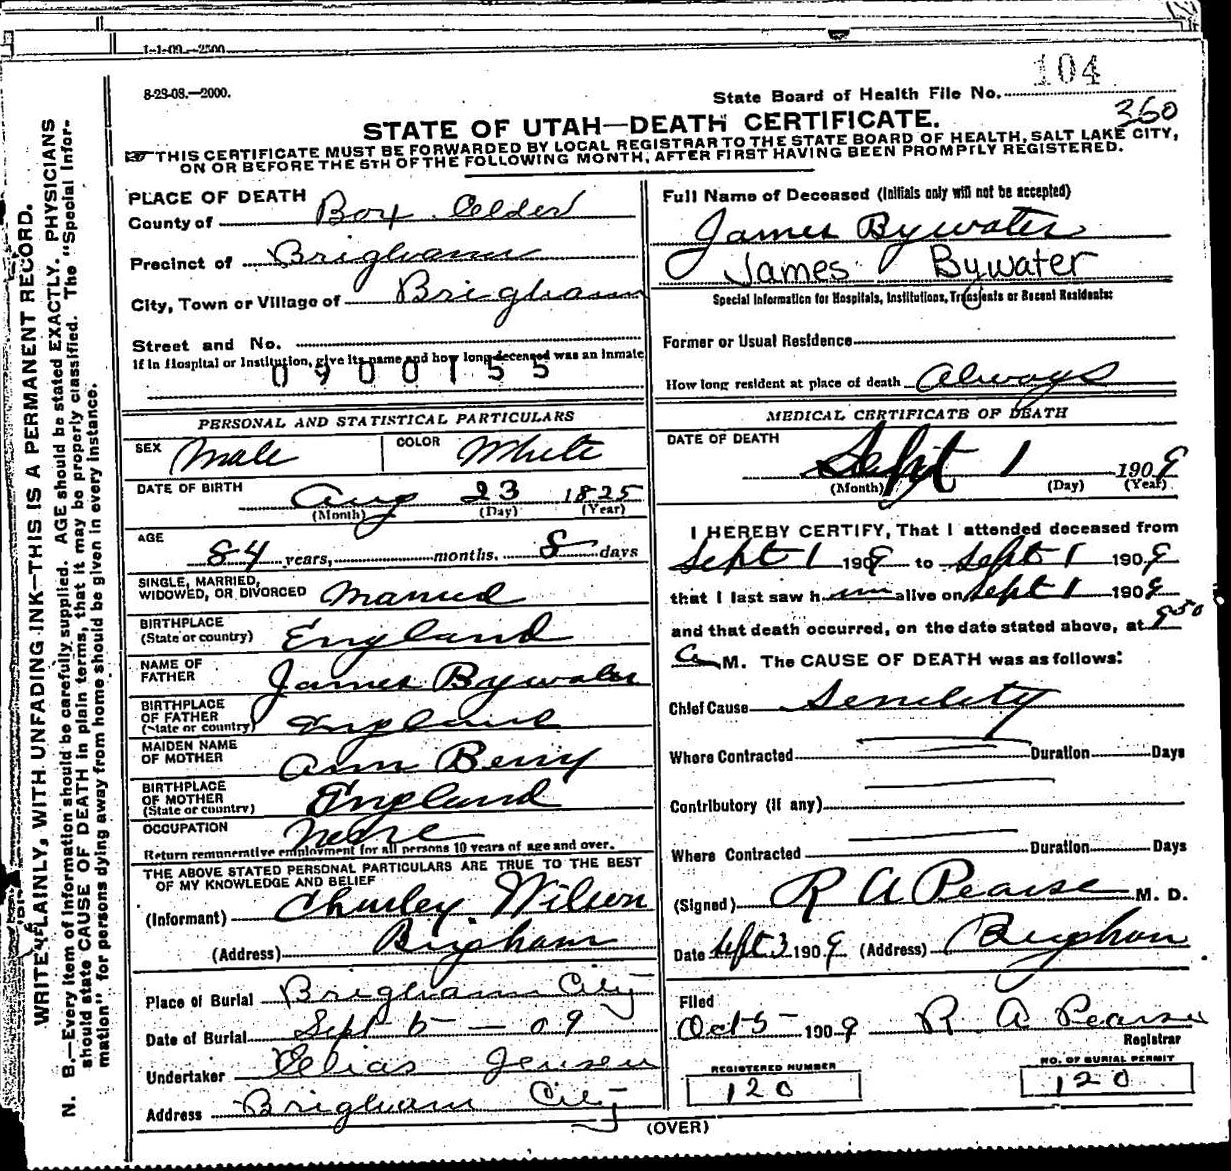 1-1-09.—2500
8-23-08.—2000.
State Board of Health File No. 104
360
STATE OF UTAH—DEATH CERTIFICATE.
THIS CERTIFICATE MUST BE FORWARDED BY LOCAL REGISTRAR TO THE STATE BOARD OF HEALTH, SALT LAKE CITY,
ON OR BEFORE THE 5TH OF THE FOLLOWING MONTH, AFTER FIRST HAVING BEEN PROMPTLY REGISTERED.
WRITE PLAINLY, WITH UNFADING INK—THIS IS A PERMANENT RECORD.
N. B.—Every item of information should be carefully supplied. AGE should be stated EXACTLY. PHYSICIANS
should state CAUSE OF DEATH in plain terms, that it may be properly classified. The "Special Infor-
mation" for persons dying away from home should be given in every instance.
PLACE OF DEATH
County of Box Elder
Precinct of Brigham
City, Town or Village of Brigham
Street and No.
If in Hospital or Institution, give its name and how long deceased was an inmate
0900155
PERSONAL AND STATISTICAL PARTICULARS
SEX Male COLOR White
DATE OF BIRTH Aug 23 1825
(Month) (Day) (Year)
AGE
84 years, months, 8 days
SINGLE, MARRIED,
WIDOWED, OR DIVORCED Married
BIRTHPLACE
(State or country) England
NAME OF
FATHER James Bywater
BIRTHPLACE
OF FATHER
(State or country) England
MAIDEN NAME
OF MOTHER Ann Berry
BIRTHPLACE
OF MOTHER
(State or country) England
OCCUPATION None
Return remunerative employment for all persons 10 years of age and over.
THE ABOVE STATED PERSONAL PARTICULARS ARE TRUE TO THE BEST
OF MY KNOWLEDGE AND BELIEF
(Informant) Churley Wilson
(Address) Brigham
Place of Burial Brigham City
Date of Burial Sept 5 — 09
Undertaker Elias Jensen
Address Brigham City
Full Name of Deceased (Initials only will not be accepted)
James Bywater
James Bywater
Special Information for Hospitals, Institutions, Transients or Recent Residents:
Former or Usual Residence
How long resident at place of death Always
MEDICAL CERTIFICATE OF DEATH
DATE OF DEATH
Sept 1 1909
(Month) (Day) (Year)
I HEREBY CERTIFY, That I attended deceased from
Sept 1 1909 to Sept 1 1909
that I last saw him alive on Sept 1 1909
and that death occurred, on the date stated above, at 9 50
a M. The CAUSE OF DEATH was as follows:
Chief Cause Senility
Where Contracted Duration Days
Contributory (if any)
Where Contracted Duration Days
(Signed) R A Pearse M. D.
Date Sept 3 1909 (Address) Brigham
Filed
Oct 5 1909 R A Pearse
Registrar
REGISTERED NUMBER
120
NO. OF BURIAL PERMIT
120
(OVER)